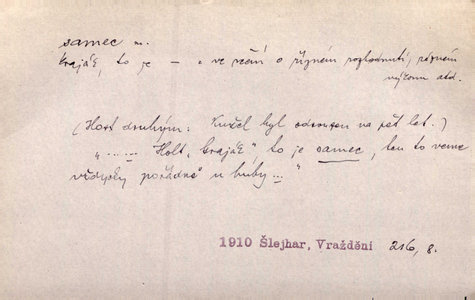 samec m.
krajáč, to je — , ve rčení o řízném rozhodnutí, pěkném
výkonu atd.
(Host druhým: Kužel byl odsouzen na pět let.)
„ ..... Holt „krajáč" to je samec, ten to veme
vždycky pořádně u huby ... "
1910 Šlejhar, Vraždění 216, 8.